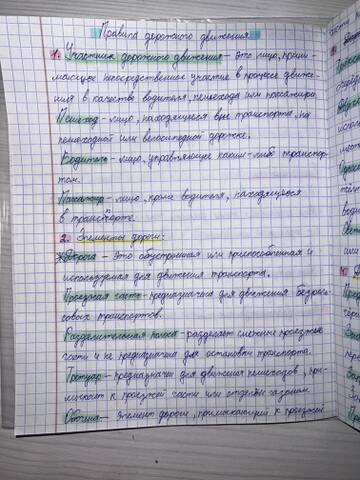 Правила дорожного движения
1. Участник дорожного движения - это лицо, прини-
мающее непосредственное участие в процессе движе-
ния в качестве водителя, пешехода или пассажира.
Пешеход - лицо, находящееся вне транспорта, на
пешеходной или велосипедной дорожке.
Водитель - лицо, управляющее каким-либо транспор-
том.
Пассажир - лицо, кроме водителя, находящееся
в транспорте.
2. Элементы дороги:
Дорога - это обустроенная или приспособленная и
используемая для движения транспорта.
Проезжая часть - предназначена для движения безрель-
совых транспортов.
Разделительная полоса - разделяет смежные проезжие
части и не предназначена для остановки транспорта.
Тротуар - предназначен для движения пешеходов, при-
мыкает к проезжей части или отделён газоном.
Обочина - элемент дороги, примыкающий к проезжей